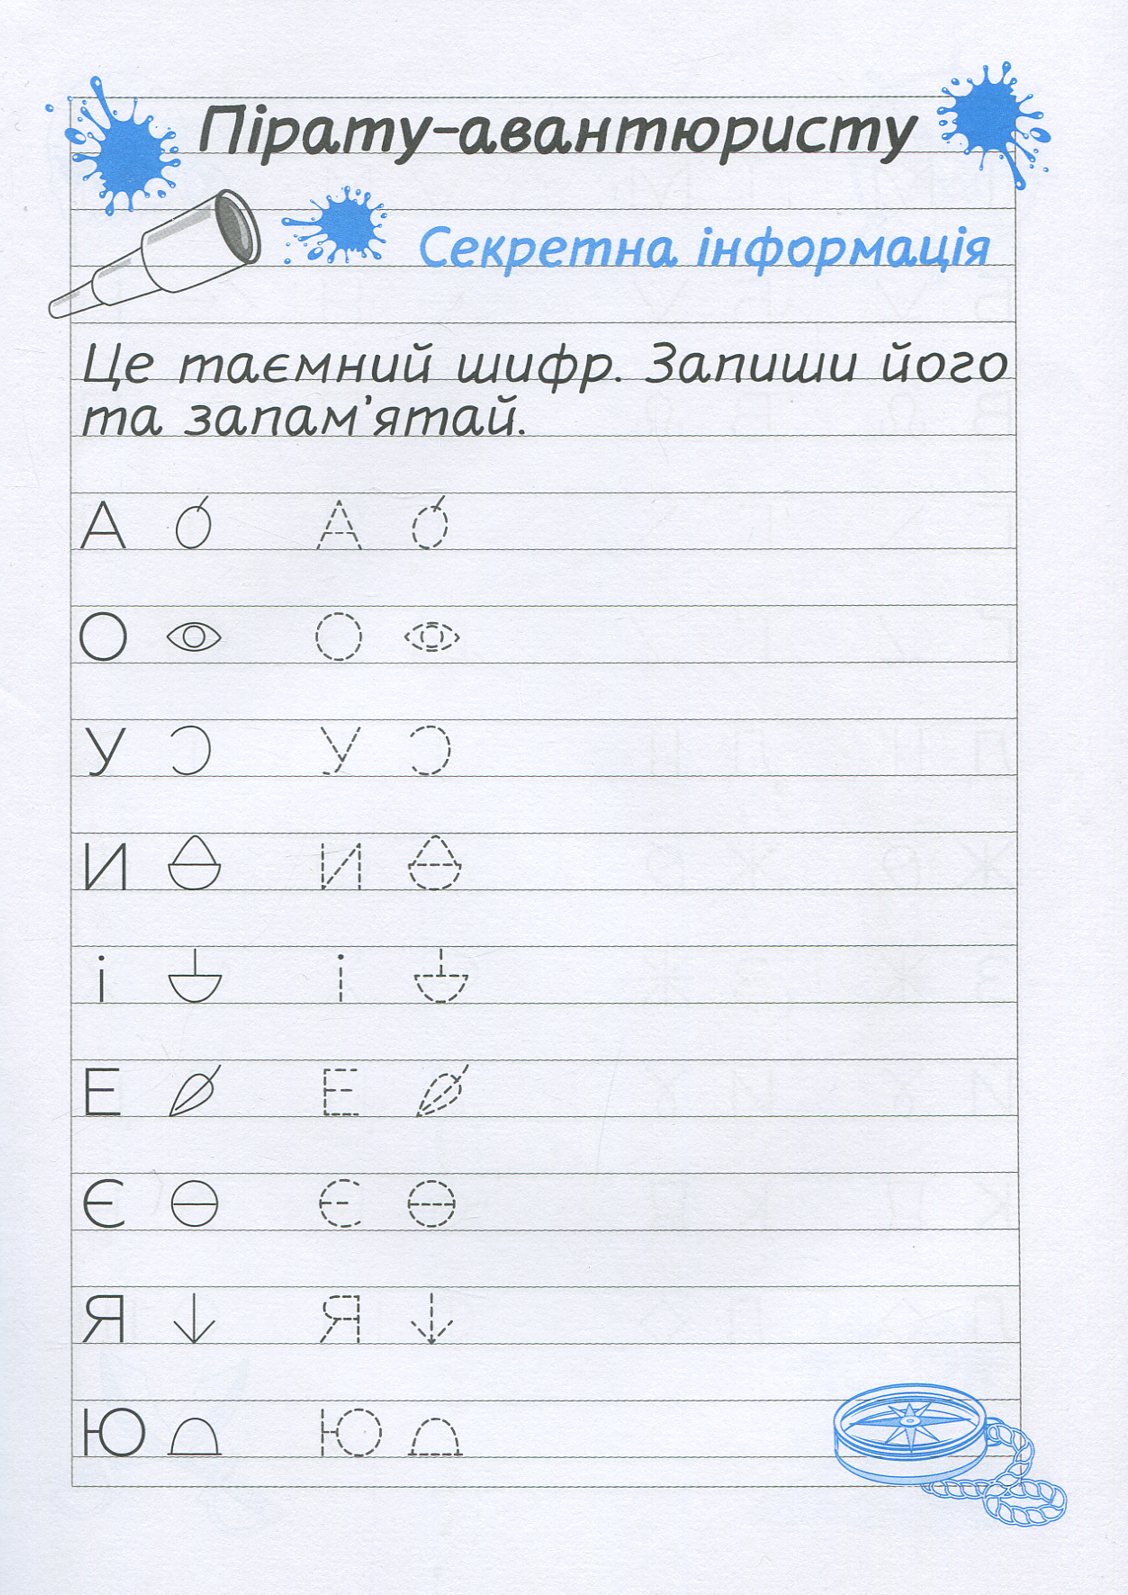 Пірату-авантюристу
Секретна інформація
Це таємний шифр. Запиши його
та запам’ятай.
А А
О О
У У
И И
і і
Е Е
Є Є
Я Я
Ю Ю